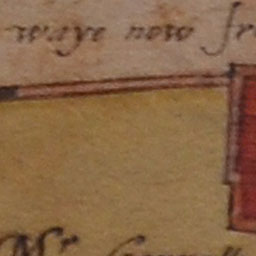 waye now fr
Mr